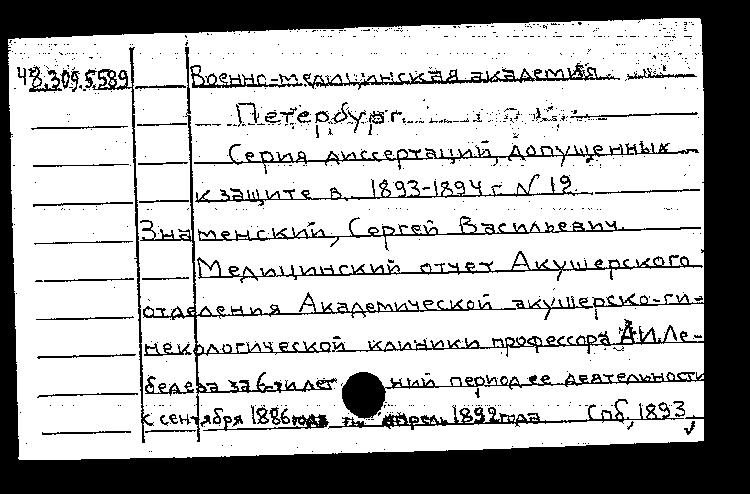 48.309.5.589
Военно-медицинская академия
Петербург.
Серия диссертаций, допущенных
к защите в 1893-1894 г N 12
Знаменский, Сергей Васильевич.
Медицинский отчет Акушерского
отделения Академической акушерско-ги-
некологической клиники профессора А.И.Ле-
бедева за 6-ти лет ний период ее деятельности
с сентября 1886 года по апрель 1892 года Спб, 1893